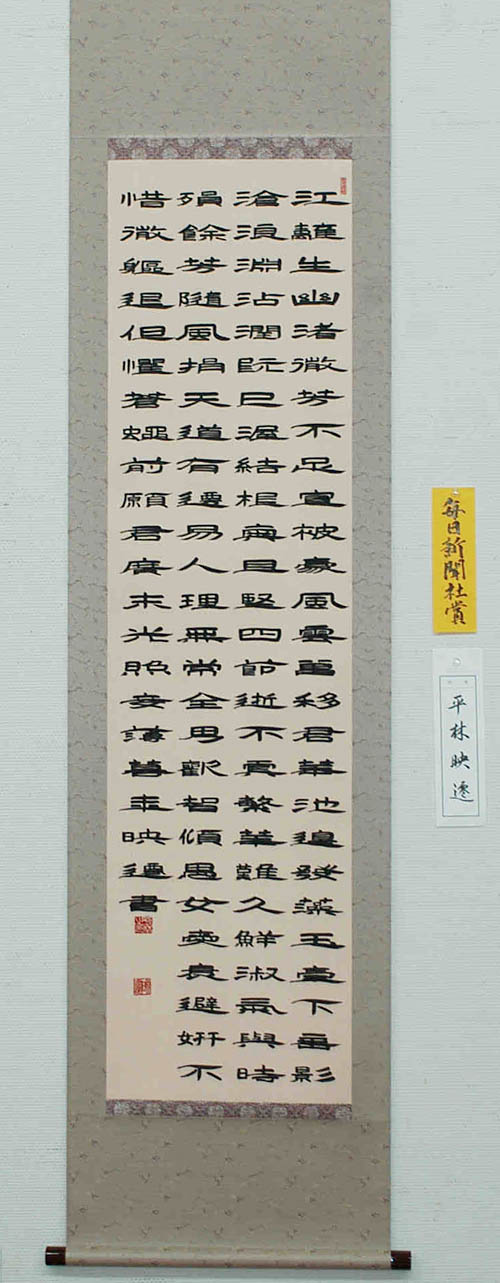 江蘺生幽渚微芳不足宣被蒙風雲會移君華池邊發藻玉臺下垂影
滄浪淵沾潤既已渥結根奧且堅四節逝不處繁華難久鮮淑氣與時
殞餘芳隨風捐天道有遷易人理無常全男歡智傾愚女愛衰避妍不
惜微軀退但懼蒼蠅前願君廣末光照妾薄暮年映遷書
毎日新聞社賞
平林映遷